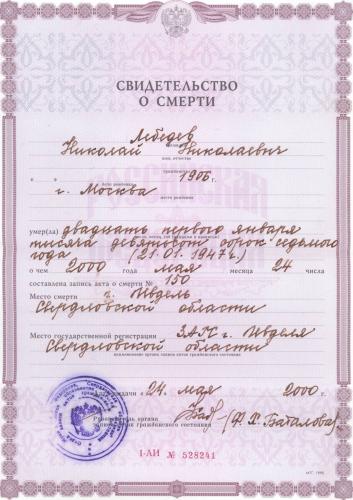 СВИДЕТЕЛЬСТВО
О СМЕРТИ
Лебедев
Николай Николаевич
имя, отчество
гражданин
" " 1906
дата рождения
г. Москва
место рождения
умер(ла) двадцать первого января
тысяча девятьсот сорок седьмого
года (21.01.1947г.)
о чем 2000 года мая месяца 24 числа
составлена запись акта о смерти № 150
Место смерти г. Ивдель
Свердловской области
Место государственной регистрации ЗАГС г. Ивделя
Свердловской области
наименование органа записи актов гражданского состояния
Дата выдачи 24 мая 2000 г.
Руководитель органа
записи актов гражданского состояния (Ф. Х. Баталова)
I-АИ № 528241